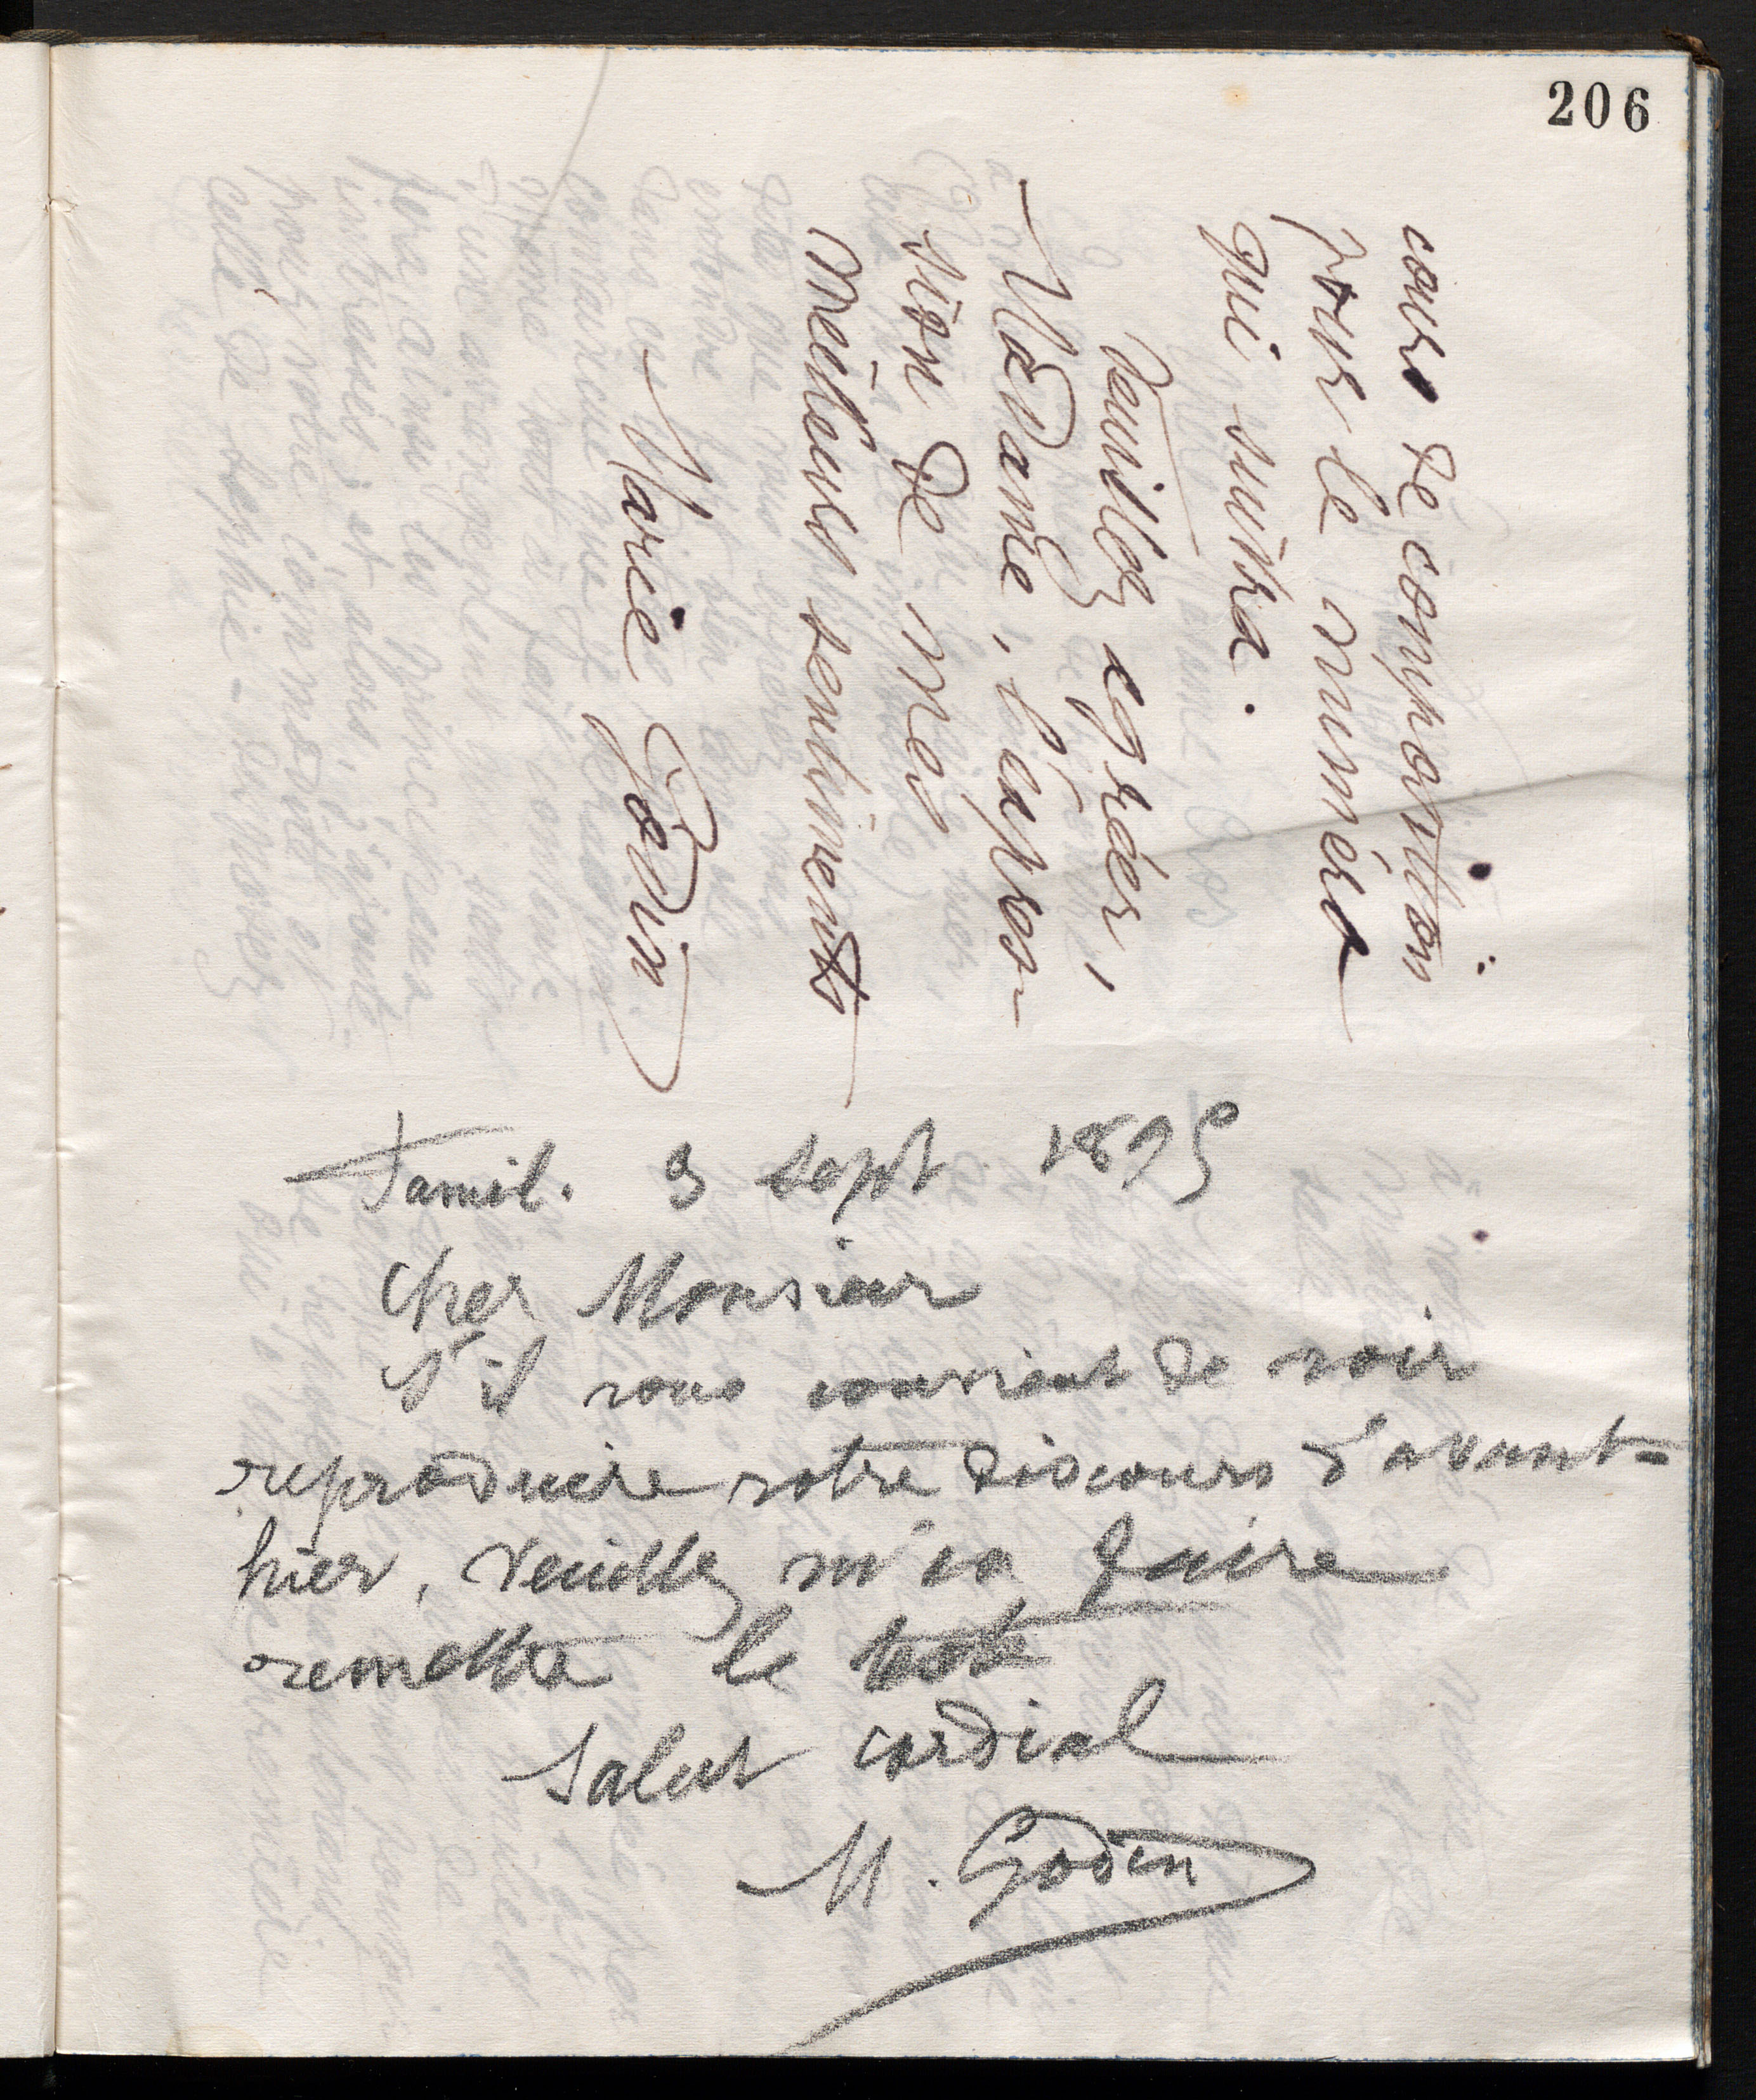 206
cours de composition
pour le numéro
qui suivra.
Veuillez agréer,
Madame, l'expres-
sion de mes
meilleurs sentiments
Marie Godin
Famil. 3 sept 1895
Cher Monsieur
S'il vous convient de voir
reproduire votre discours d'avant-
hier, veuillez m'en faire
remettre le texte
Salut cordial
M. Godin